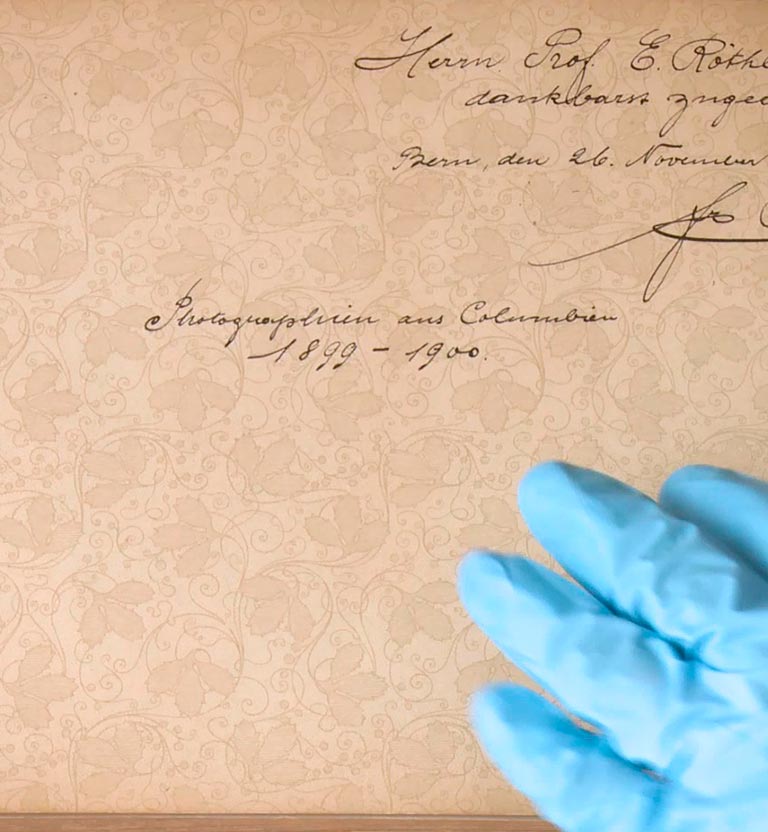 Herrn Prof. E. Röthl
dankbarst zugee
Bern, den 26. November
Fr
Photographien aus Columbien
1899 - 1900.